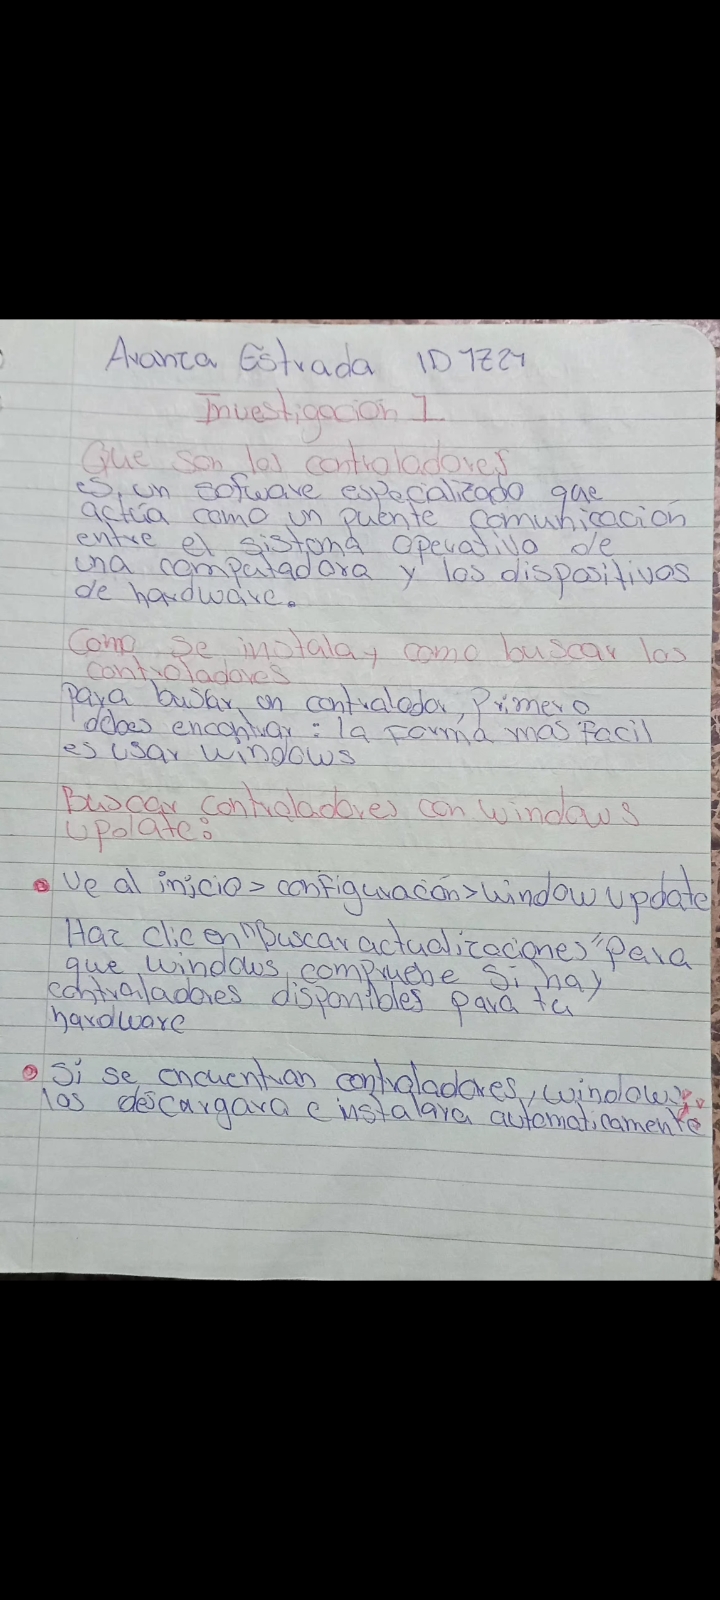 Avanca Estrada ID 1724
Investigación 1
Que son los controladores
es, un sofware especializado que
actúa como un puente comunicación
entre el sistema operativo de
una computadora y los dispositivos
de hardware.
Como se instala y como buscar los
controladores
para buscar un controlador, Primero
debes encontrar: la forma mas facil
es usar windows
Buscar controladores con windows
Update:
Ve al inicio > configuración > window update
Haz clic en "Buscar actualizaciones" para
que windows compruebe si hay
controladores disponibles para tu
hardware
Si se encuentran controladores, windows
los descargara e instalara automaticamente